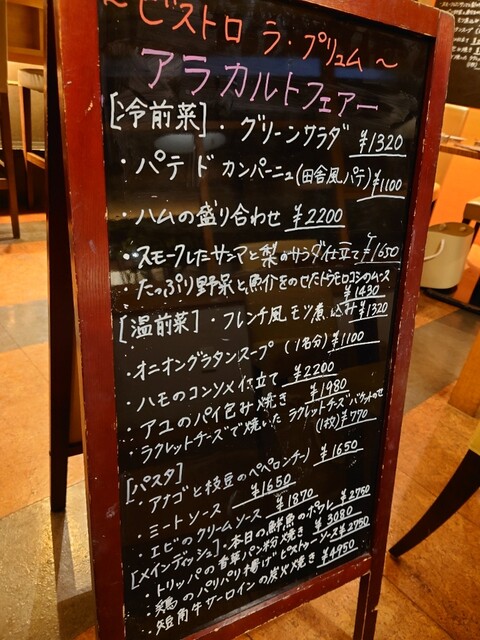 ~ビストロ ラ・プリュム~
アラカルトフェアー
[冷前菜]・グリーンサラダ ¥1320
・パテ ド カンパーニュ(田舎風パテ) ¥1100
・ハムの盛り合わせ ¥2200
・スモークしたサンマと梨のサラダ仕立て ¥1650
・たっぷり野菜と魚介をのせたトウモロコシのムース ¥1430
[温前菜]・フレンチ風モツ煮込み ¥1320
・オニオングラタンスープ (1名分) ¥1100
・ハモのコンソメ仕立て ¥2200
・アユのパイ包み焼き ¥1980
・ラクレットチーズで焼いたラクレットチーズバケットのせ (1枚) ¥770
[パスタ]
・アナゴと枝豆のペペロンチーノ ¥1650
・ミートソース ¥1650
・エビのクリームソース ¥1870
[メインディッシュ]・本日の鮮魚のポワレ ¥2750
・トリッパの香草パン粉焼き ¥3080
・鶏のパリパリ揚げピストゥーソース ¥2750
・短角牛サーロインの炭火焼き ¥4950